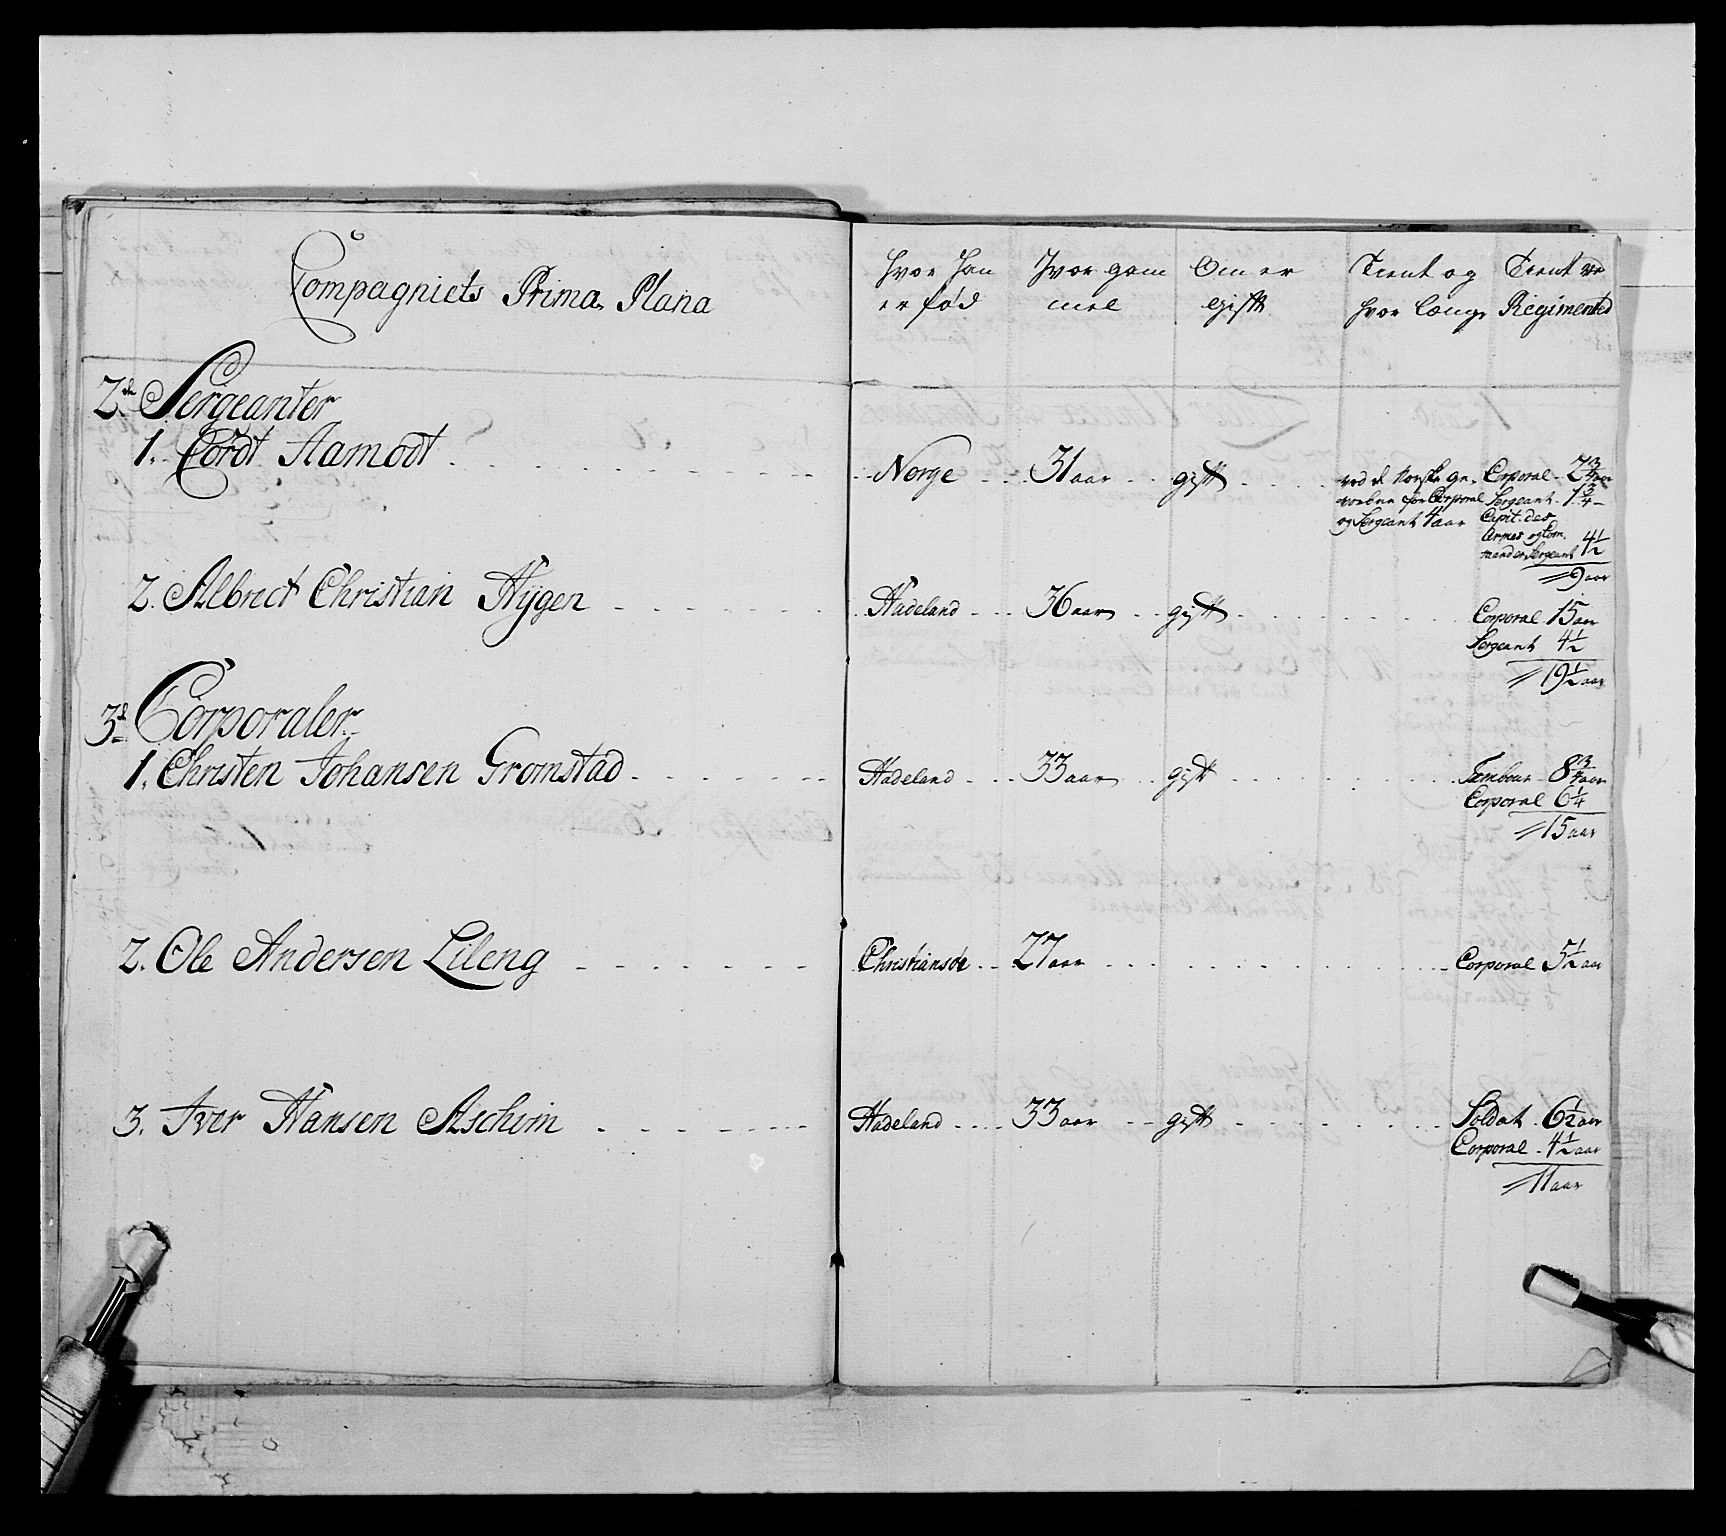 Compagniets Prima Plana
hvor han er fød
Hvor gammel
Om er gift
Tient og hvor længe
Tient ved Regimentet
2de Sergeanter
1. Cordt Aamodt
Norge 31 aar gift
ved de Norske ge-
vorbne for Corporal
og Sergeant 4 aar
Corporal 2 3/4 aar
Sergeant 1 3/4
Capit: des
Armes og Com-
mander Sergeant 4 1/2
9 aar
2. Albrect Christian Hÿgen
Hadeland 36 aar gift
Corporal 15 aar
Sergeant 4 1/2
19 1/2 aar
3de Corporaler
1. Christen Johansen Gromstad
Hadeland 33 aar gift
Tambour 8 3/4 aar
Corporal 6 1/4
15 aar
2. Ole Andersen Lileng
Christiania 27 aar
Corporal 5 1/2 aar
3. Iver Hansen Aschim
Hadeland 33 aar gift
Soldat 6 1/2 aar
Corporal 4 1/2 aar
11 aar